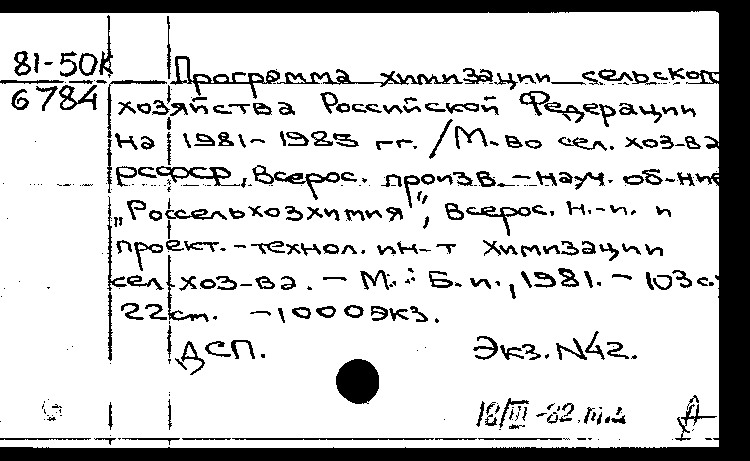 81-50К
6784
Программа химизации сельского
хозяйства Российской Федерации
на 1981-1985 гг. /М-во сел. хоз-ва
РСФСР, Всерос. произв.-науч. об-ние
„Россельхозхимия", Всерос. н.-и. и
проект.-технол. ин-т химизации
сел. хоз-ва. - М.: Б.и., 1981. - 103 с.;
22 см. - 1000 экз.
ДСП. Экз. N42.
18/III-82